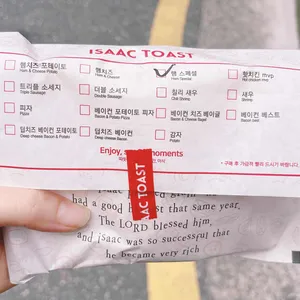 ISAAC TOAST
햄치즈 포테이토 햄치즈 햄 스페셜 핫치킨 mvp
Ham & Cheese Potato Ham & Cheese Ham Special
트리플 소세지 더블 소세지 칠리 새우 새우
Triple Sausage Double Sausage Chili Shrimp
피자 베이컨 포테이토 피자 베이컨 치즈 베이글 베이컨 베스트
Pizza Bacon & Potato Pizza Bacon best
딥치즈 베이컨 포테이토 딥치즈 베이컨 감자
Deep cheese Bacon Potato
Enjoy, moments
ISAAC TOAST
had a good st that same year.
The LORD blessed him,
and isaac was so successful that
he became very rich